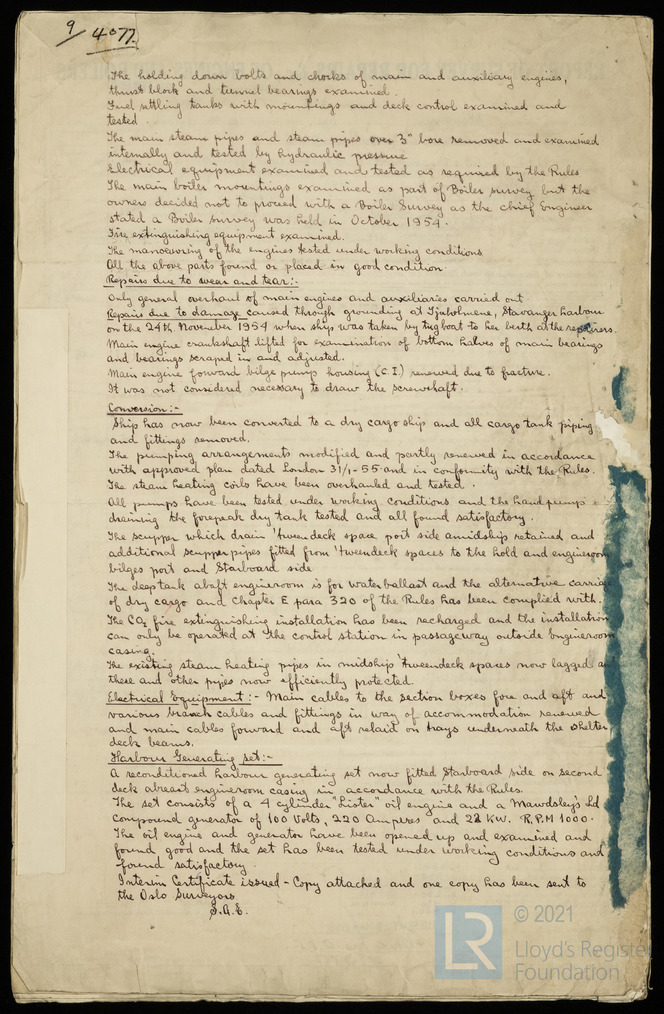 9/4077.
The holding down bolts and chocks of main and auxiliary engines,
thrust block and tunnel bearings examined.
Fuel settling tanks with mountings and deck control examined and
tested.
The main steam pipes and steam pipes over 3" bore removed and examined
internally and tested by hydraulic pressure
Electrical equipment examined and tested as required by the Rules
The main boiler mountings examined as part of Boiler survey but the
owners decided not to proceed with a Boiler Survey as the chief Engineer
stated a Boiler survey was held in October 1954.
Fire extinguishing equipment examined.
The manoevering of the engines tested under working conditions
All the above parts found or placed in good condition
Repairs due to wear and tear:-
Only general overhaul of main engines and auxiliaries carried out
Repairs due to damage caused through grounding at Tjuholmene, Stavanger harbour
on the 24th November 1954 when ship was taken by tugboat to her berth at the repairers.
Main engine crankshaft lifted for examination of bottom halves of main bearings
and bearings scraped in and adjusted.
Main engine forward bilge pump housing (C.I.) renewed due to fracture.
It was not considered necessary to draw the screwshaft.
Conversion:-
Ship has now been converted to a dry cargo ship and all cargo tank piping
and fittings removed.
The pumping arrangements modified and partly renewed in accordance
with approved plan dated London 31/1-55 and in conformity with the Rules.
The steam heating coils have been overhauled and tested.
All pumps have been tested under working conditions and the handpump
draining the forepeak dry tank tested and all found satisfactory.
The scupper which drain 'tweendeck space port side amidship retained and
additional scupperpipes fitted from 'tweendeck spaces to the hold and engineroom
bilges port and Starboard side
The deeptank abaft engineroom is for waterballast and the alternative carriage
of dry cargo and Chapter E para 320 of the Rules has been complied with.
The CO2 fire extinguishing installation has been recharged and the installation
can only be operated at the control station in passageway outside Engineroom
casing.
The existing steam heating pipes in midship 'tweendeck spaces now lagged an
these and other pipes now efficiently protected.
Electrical Equipment:- Main cables to the section boxes fore and aft and
various branch cables and fittings in way of accommodation renewed
and main cables forward and aft relaid on trays underneath the shelter
deck beams.
Harbour Generating set:-
A reconditioned harbour generating set now fitted Starboard side on second
deck abreast engineroom casing in accordance with the Rules.
The set consists of a 4 cylinder "Lister" oil engine and a Mawdsley's Ld
Compound generator of 100 Volts, 220 Amperes and 22 KW. R.P.M 1000.
The oil engine and generator have been opened up and examined and
found good and the set has been tested under working conditions and
found satisfactory
Interim Certificate issued - Copy attached and one copy has been sent to
the Oslo Surveyors
S.A.E.
LR © 2021
Lloyd's Register
Foundation